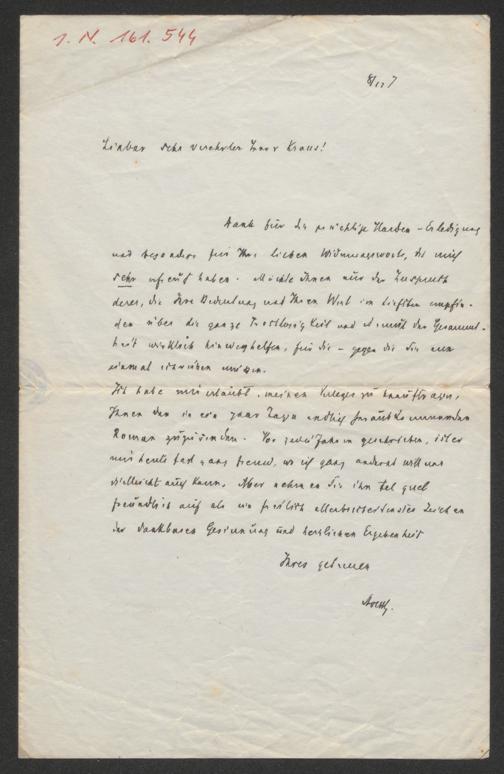 I. N. 161.544
8/12 7
Lieber sehr verehrter Herr Kraus!
Dank für die prächtige Harden-Erledigung
und besonders für Ihre lieben Widmungsworte, die mich
sehr erfreut haben. Möchte Ihnen nur der Zuspruch
derer, die Ihre Bedeutung und Ihren Wert im tiefsten empfin-
den über die ganze Trostlosigkeit und Armut der Gesammt-
heit wirklich hinweghelfen, für die – gegen die Sie nun
einmal schreiben müssen.
Ich habe mir erlaubt, meinen Verleger zu beauftragen,
Ihnen den in ein paar Tagen endlich herauskommenden
Roman zuzusenden. Vor zwei Jahren geschrieben, ist er
mir heute fast ganz fremd, wo ich ganz anderes will und
vielleicht auch kann. Aber nehmen Sie ihn tel quel
freundlich auf als ein freilich allerbescheidenstes Zeichen
der dankbaren Gesinnung und herzlichen Ergebenheit
Ihres getreuen